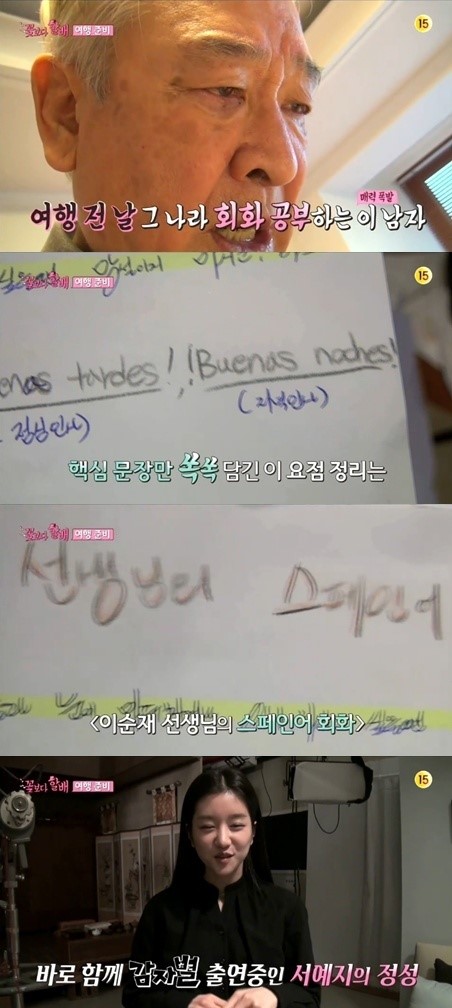 꽃보다 할배 여행 준비
15
매력 폭발
여행 전 날 그 나라 회화 공부하는 이 남자
꽃보다 할배 여행 준비
15
enas tardes!, ¡Buenas noches!
점심인사)
(저녁인사)
핵심 문장만 쏙쏙 담긴 이 요점 정리는
꽃보다 할배 여행 준비
15
선생님의 스페인어
<이순재 선생님의 스페인어 회화>
꽃보다 할배 여행 준비
15
바로 함께 감자별 출연중인 서예지의 정성